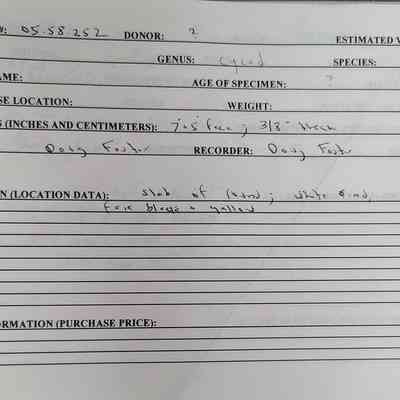 : 05.58.252 DONOR: ? ESTIMATED V
GENUS: Cycad SPECIES:
AME: AGE OF SPECIMEN: ?
SE LOCATION: WEIGHT:
S (INCHES AND CENTIMETERS): face; 3/8" thick
Doug Foster RECORDER: Doug Foster
N (LOCATION DATA): slab of ; white
face black & yellow
ORMATION (PURCHASE PRICE):